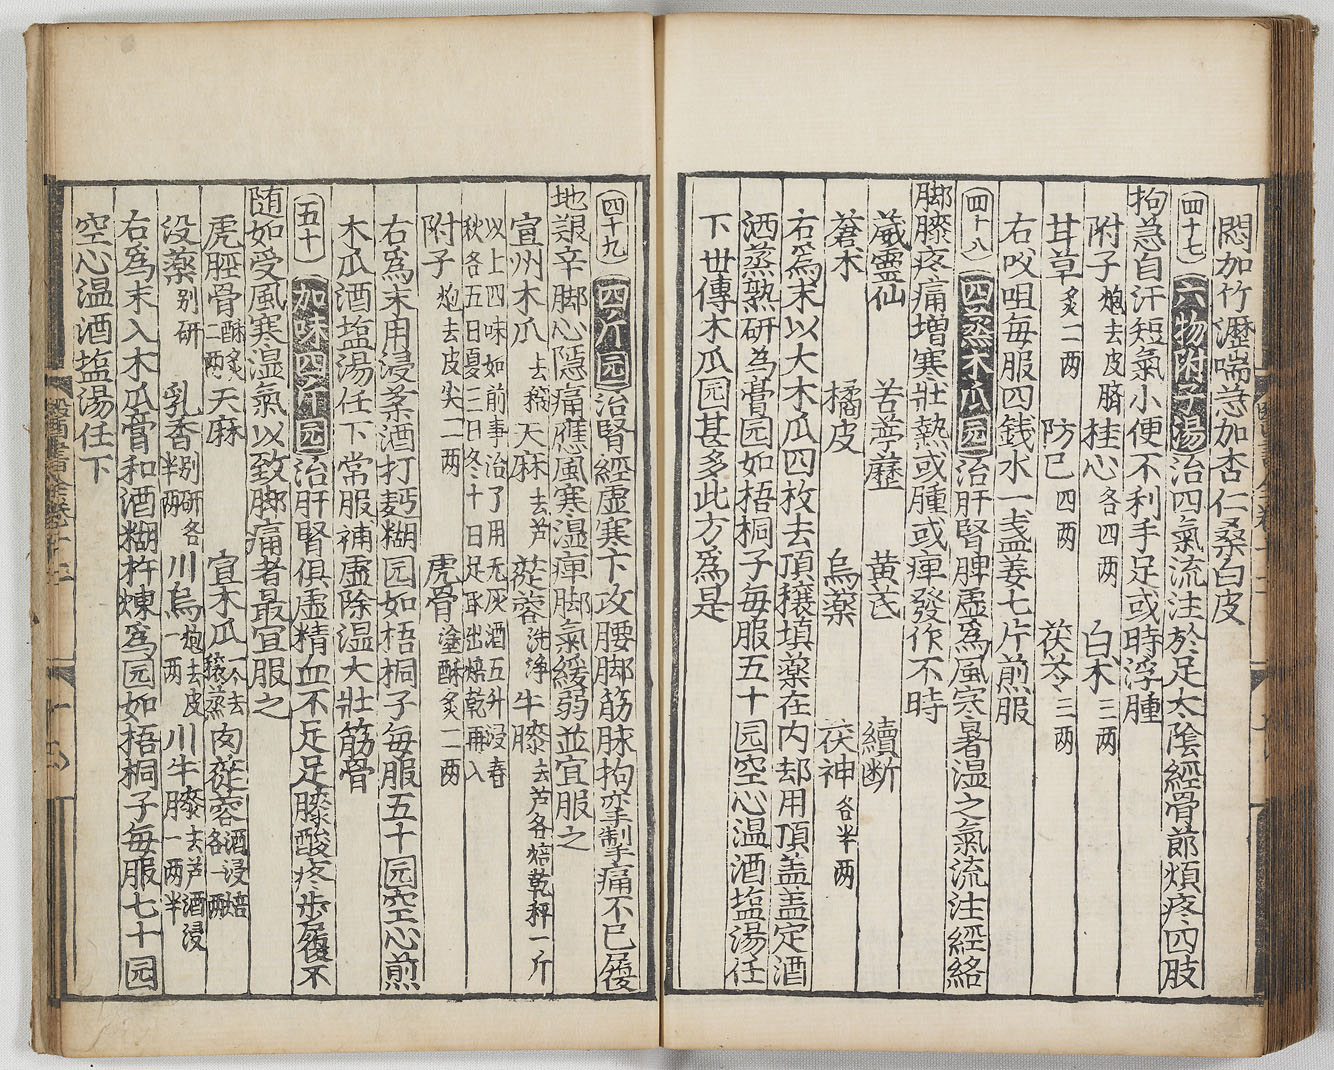 悶加竹瀝喘急加杏仁桑白皮
四十七 六物附子湯 治四氣流注於足太陰經骨節煩疼四肢
拘急自汗短氣小便不利手足或時浮腫
附子炮去皮臍 桂心各四两 白朮三两
甘草炙二两 防己四两 茯苓三两
右㕮咀每服四銭水一盞姜七片煎服
四十八 四蒸木瓜园 治肝腎脾虚為風寒暑温之氣流注經絡
脚膝疼痛増寒壯熱或腫或痺發作不時
葳靈仙 苦葶藶 黃芪 續断
蒼朮 橘皮 烏薬 茯神各半两
右為末以大木瓜四枚去頂穣填薬在内却用頂盖盖定酒
洒蒸熟研為膏园如梧桐子每服五十园空心温酒塩湯任
下世傳木瓜园甚多此方為是
四十九 四斤园 治腎經虚寒下攻腰脚筋脉拘挛掣痛不已履
地艱辛脚心隠痛應風寒湿痺脚氣緩弱並宜服之
宣州木瓜去穣 天麻去芦 蓯蓉洗净 牛膝去芦各焙乾秤一斤
以上四味如前事治了用无灰酒五升浸春
秋各五日夏三日冬十日足取出焙乾再入
附子炮去皮尖二两 虎骨塗酥炙二两
右為末用浸薬酒打麪糊园如梧桐子每服五十园空心煎
木瓜酒塩湯任下常服補虚除湿大壯筋骨
五十 加味四斤园 治肝腎俱虚精血不足足膝酸疼歩履不
随如受風寒湿氣以致脚痛者最宜服之
虎脛骨酥炙二两 天麻 宣木瓜一个去穣蒸 肉蓯蓉酒浸焙各一两
没薬别研 乳香别研各半两 川烏炮去皮一两 川牛膝去芦酒浸一两半
右為末入木瓜膏和酒糊杵煉為园如梧桐子每服七十园
空心温酒塩湯任下